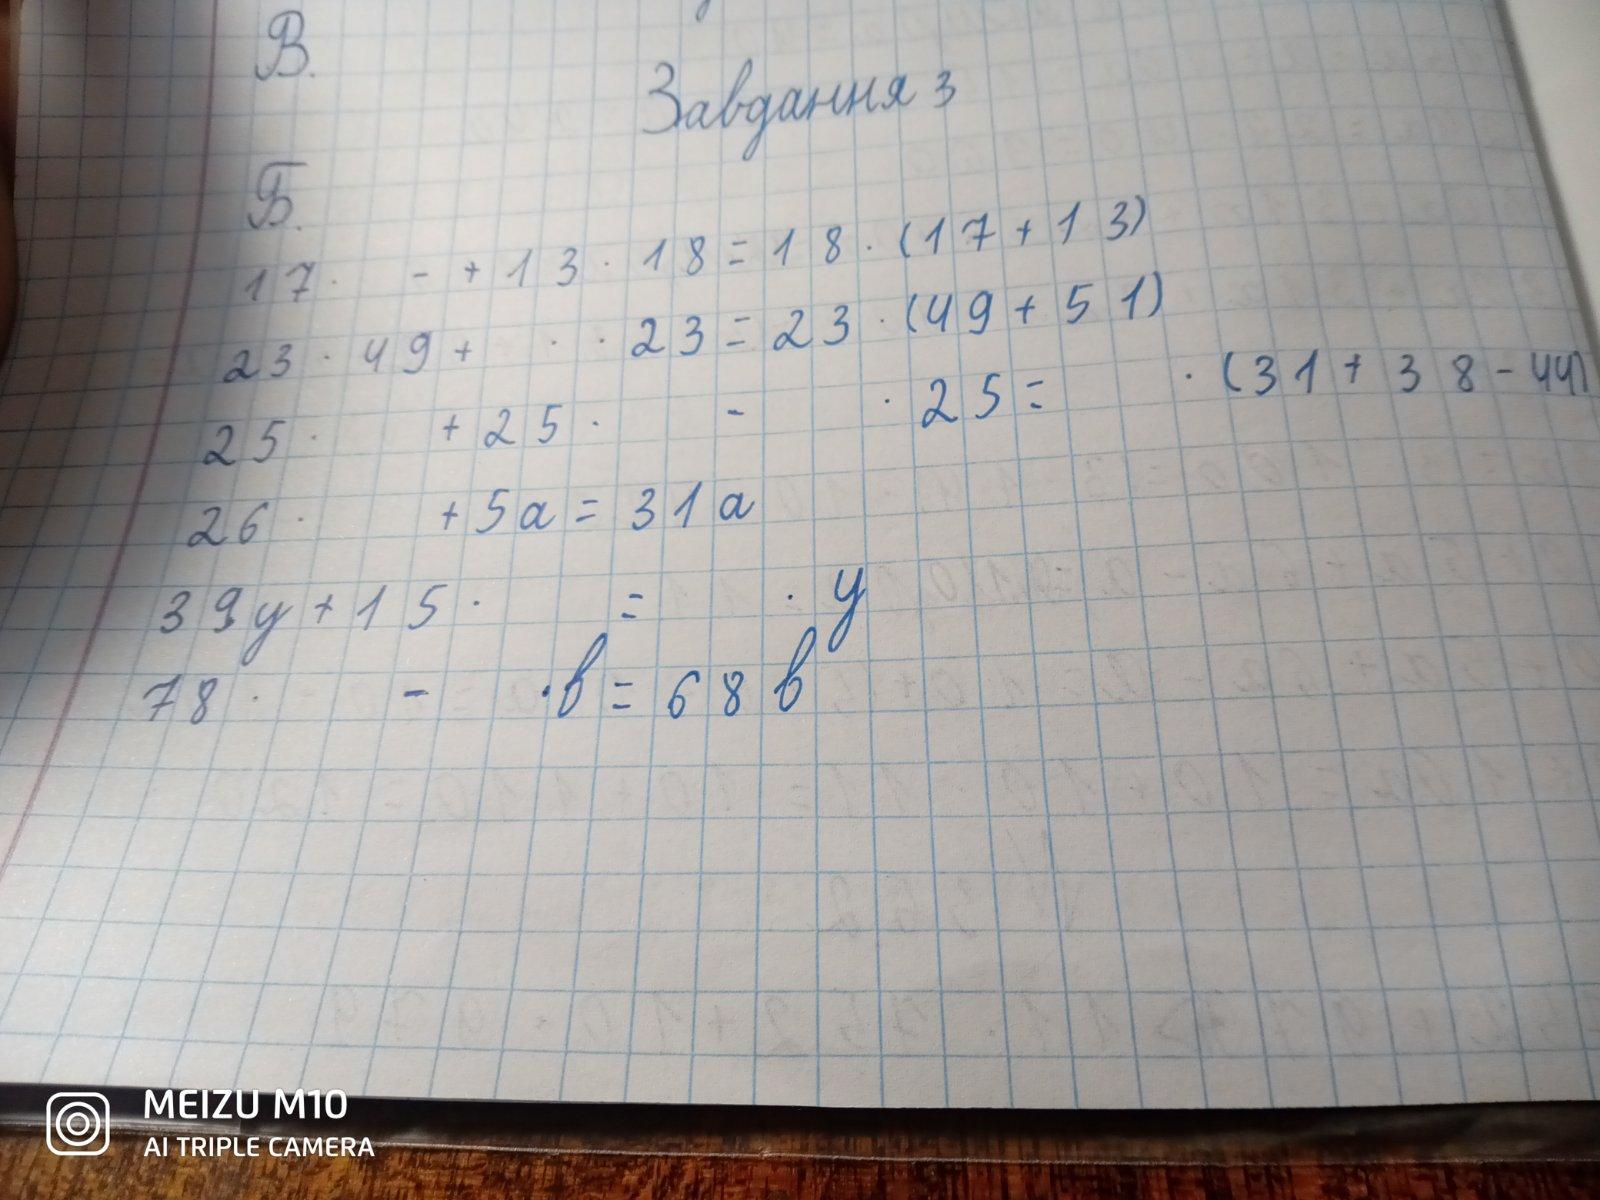 В.
Завдання 3
Б.
17 ·      - + 13 · 18 = 18 · (17 + 13)
23 · 49 +    · · 23 = 23 · (49 + 51)
25 ·      + 25 ·      -      · 25 =      · (31 + 38 - 44)
26 ·      + 5a = 31a
39y + 15 ·      =      · y
78 ·      -      · b = 68b
MEIZU M10
AI TRIPLE CAMERA